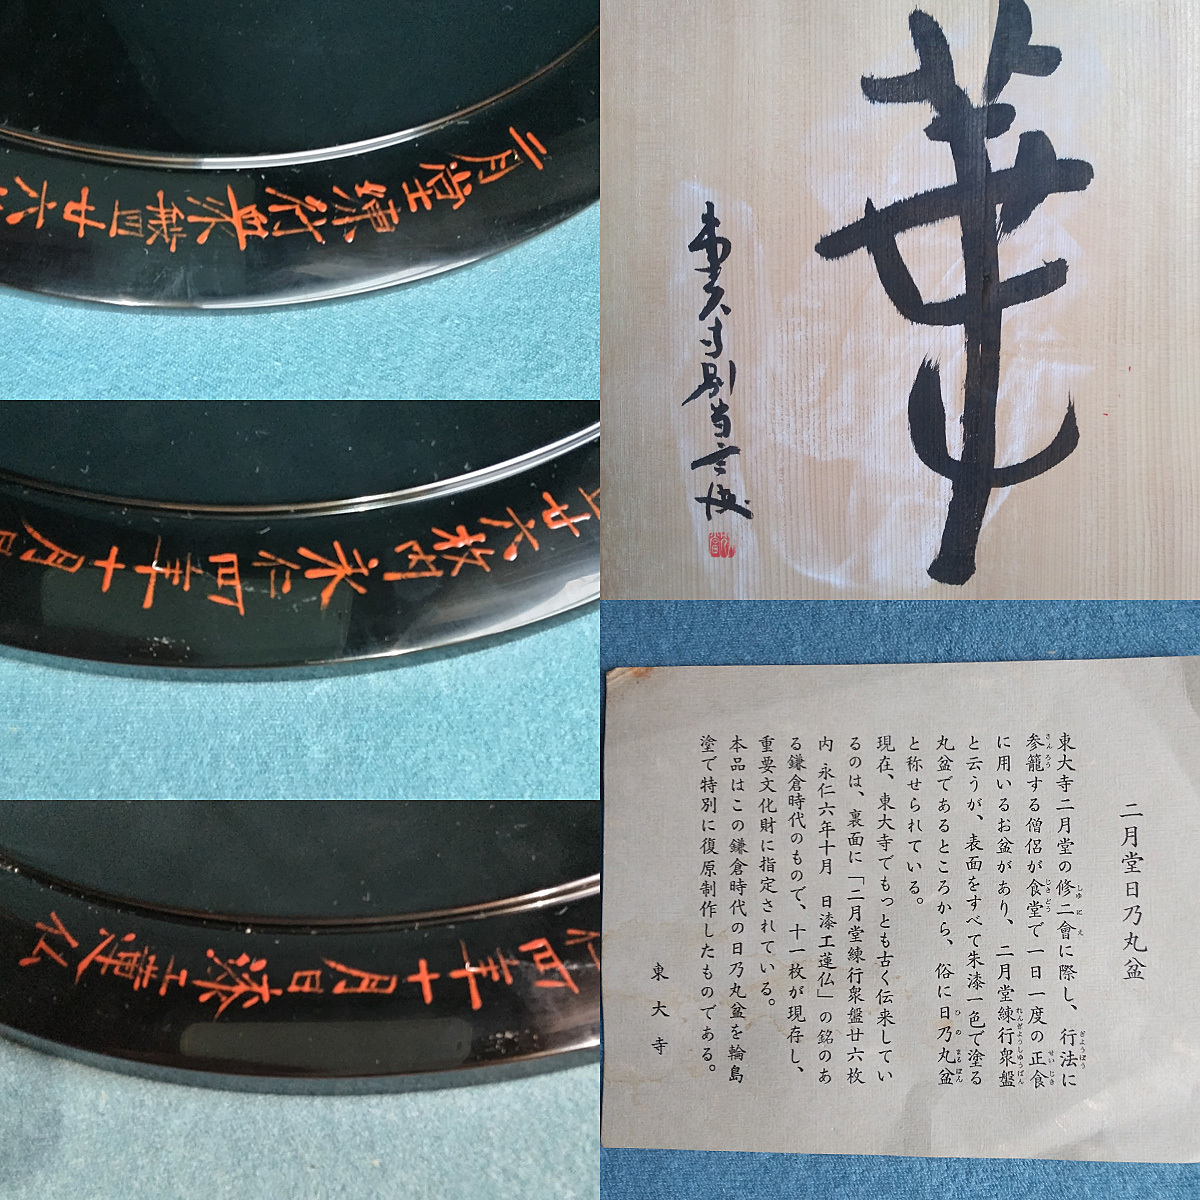 二月堂練行衆盤廿六
廿六枚内永仁四年十月
仁四年十月日漆工蓮仏
華
東大寺別当
二月堂日乃丸盆
東大寺二月堂の修二會に際し、行法に
参籠する僧侶が食堂で一日一度の正食
に用いるお盆があり、二月堂練行衆盤
と云うが、表面をすべて朱漆一色で塗る
丸盆であるところから、俗に日乃丸盆
と称せられている。
現在、東大寺でもっとも古く伝来してい
るのは、裏面に「二月堂練行衆盤廿六枚
内 永仁六年十月 日漆工蓮仏」の銘のあ
る鎌倉時代のもので、十一枚が現存し、
重要文化財に指定されている。
本品はこの鎌倉時代の日乃丸盆を輪島
塗で特別に復原制作したものである。
東大寺